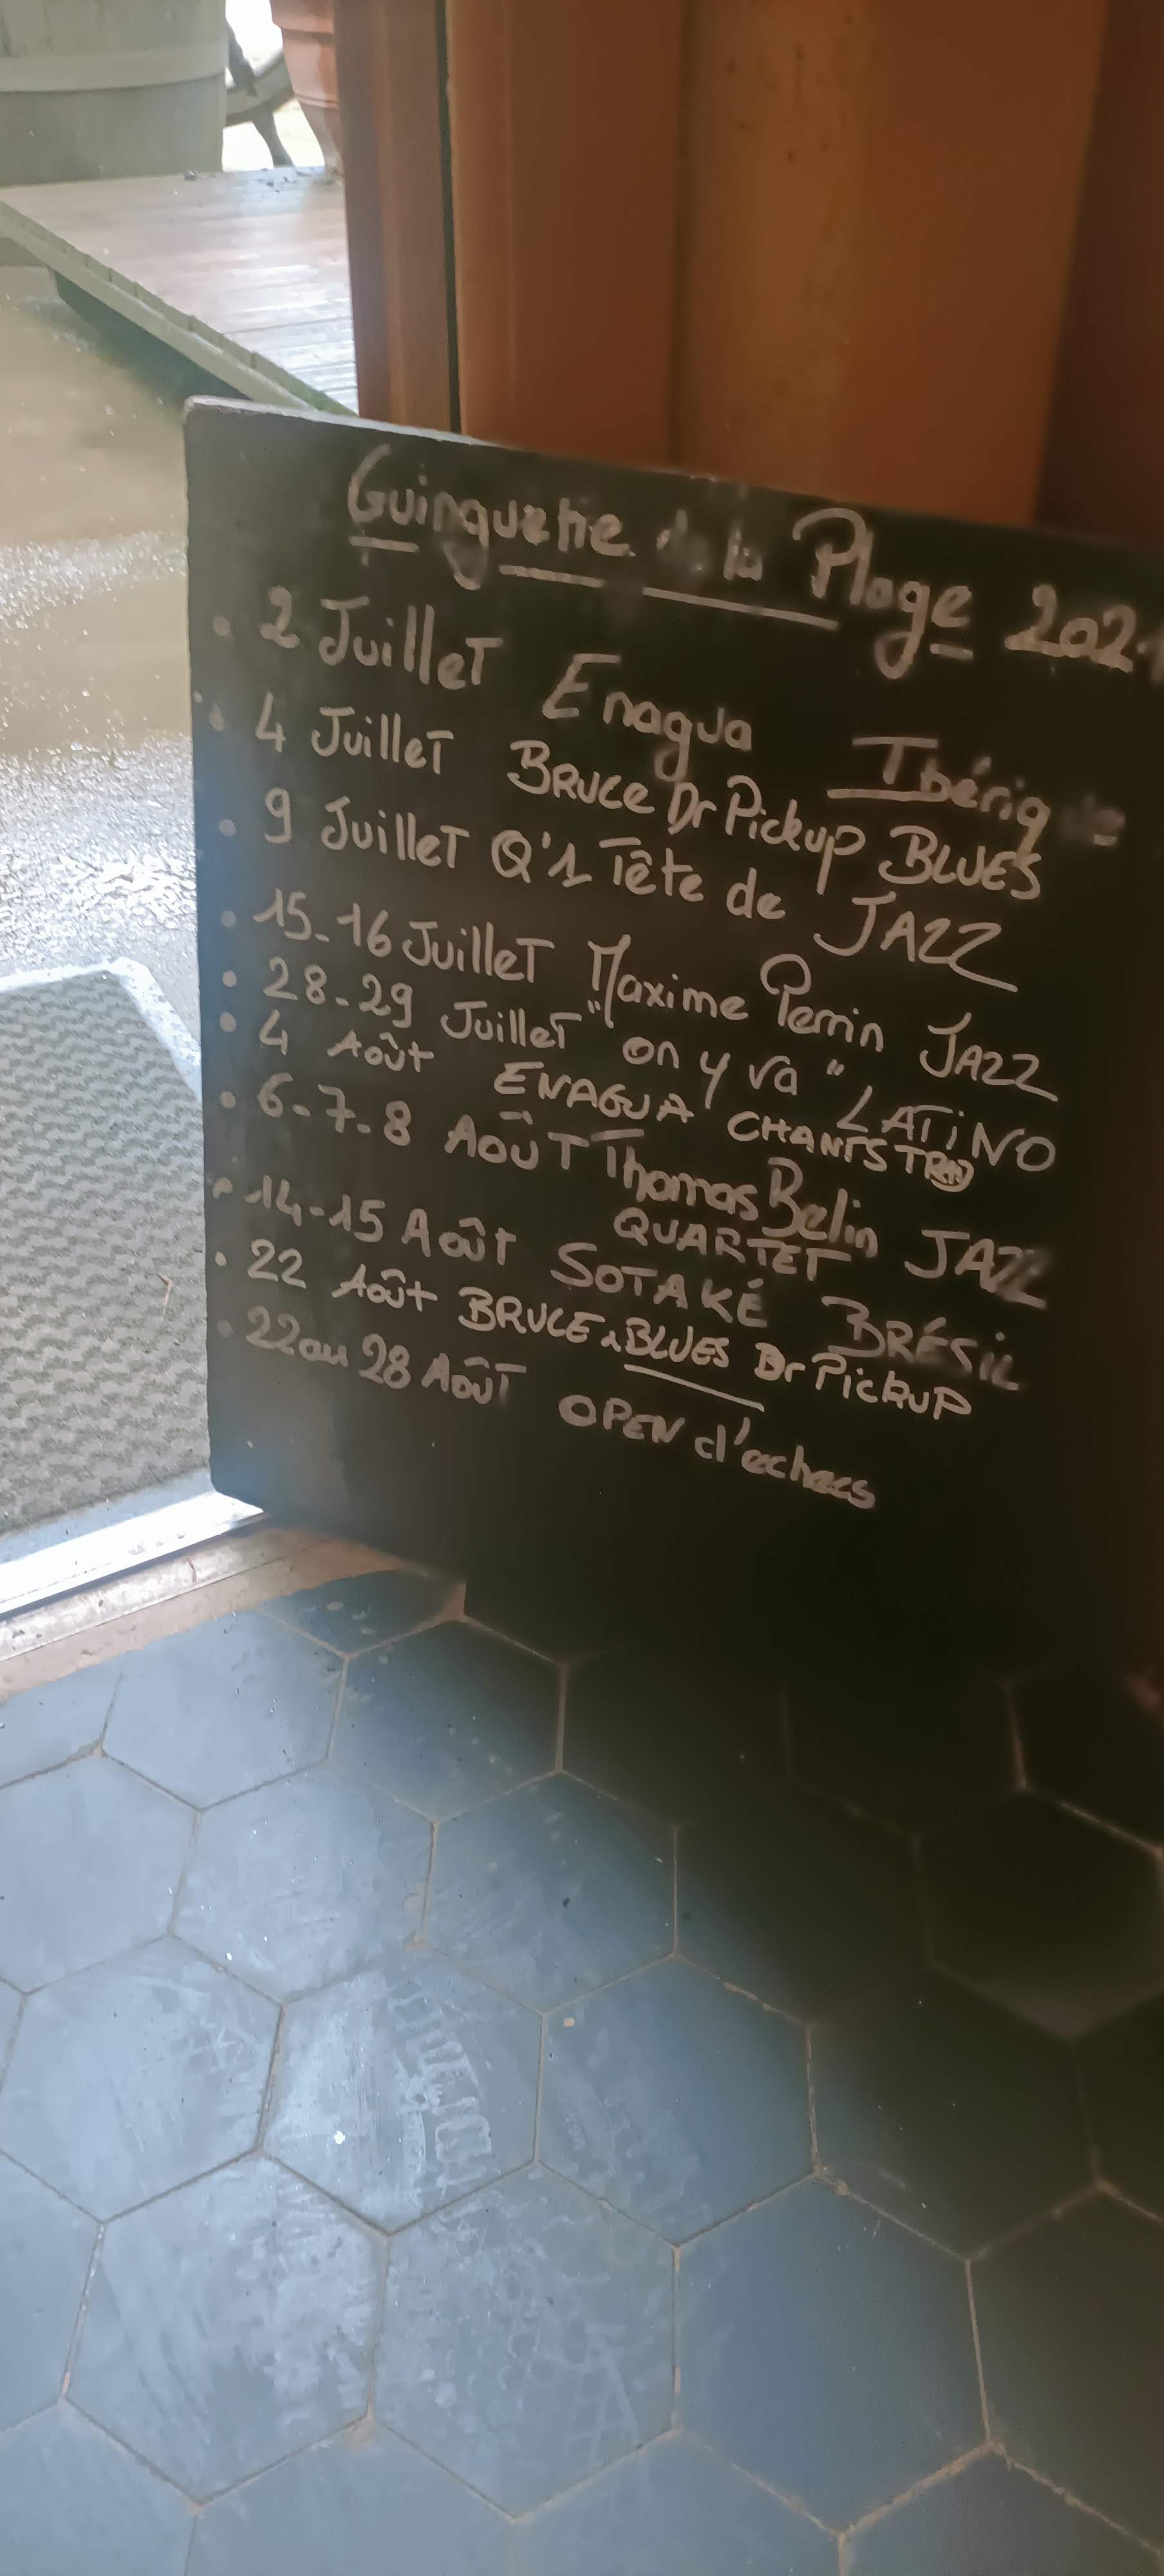 Guinguette de la Plage 2021
• 2 Juillet Enagua Ibérique
• 4 Juillet BRUCE Dr Pickup BLUES
• 9 Juillet Q'1 Tête de JAZZ
• 15-16 Juillet Maxime Perrin JAZZ
• 28-29 Juillet "on y va" LATINO
• 4 Août ENAGUA CHANTS TRAD
• 6-7-8 Août Thomas Belin JAZZ
QUARTET
• 14-15 Août SOTAKÉ BRÉSIL
• 22 Août BRUCE & BLUES Dr Pickup
• 22 au 28 Août OPEN d'echecs